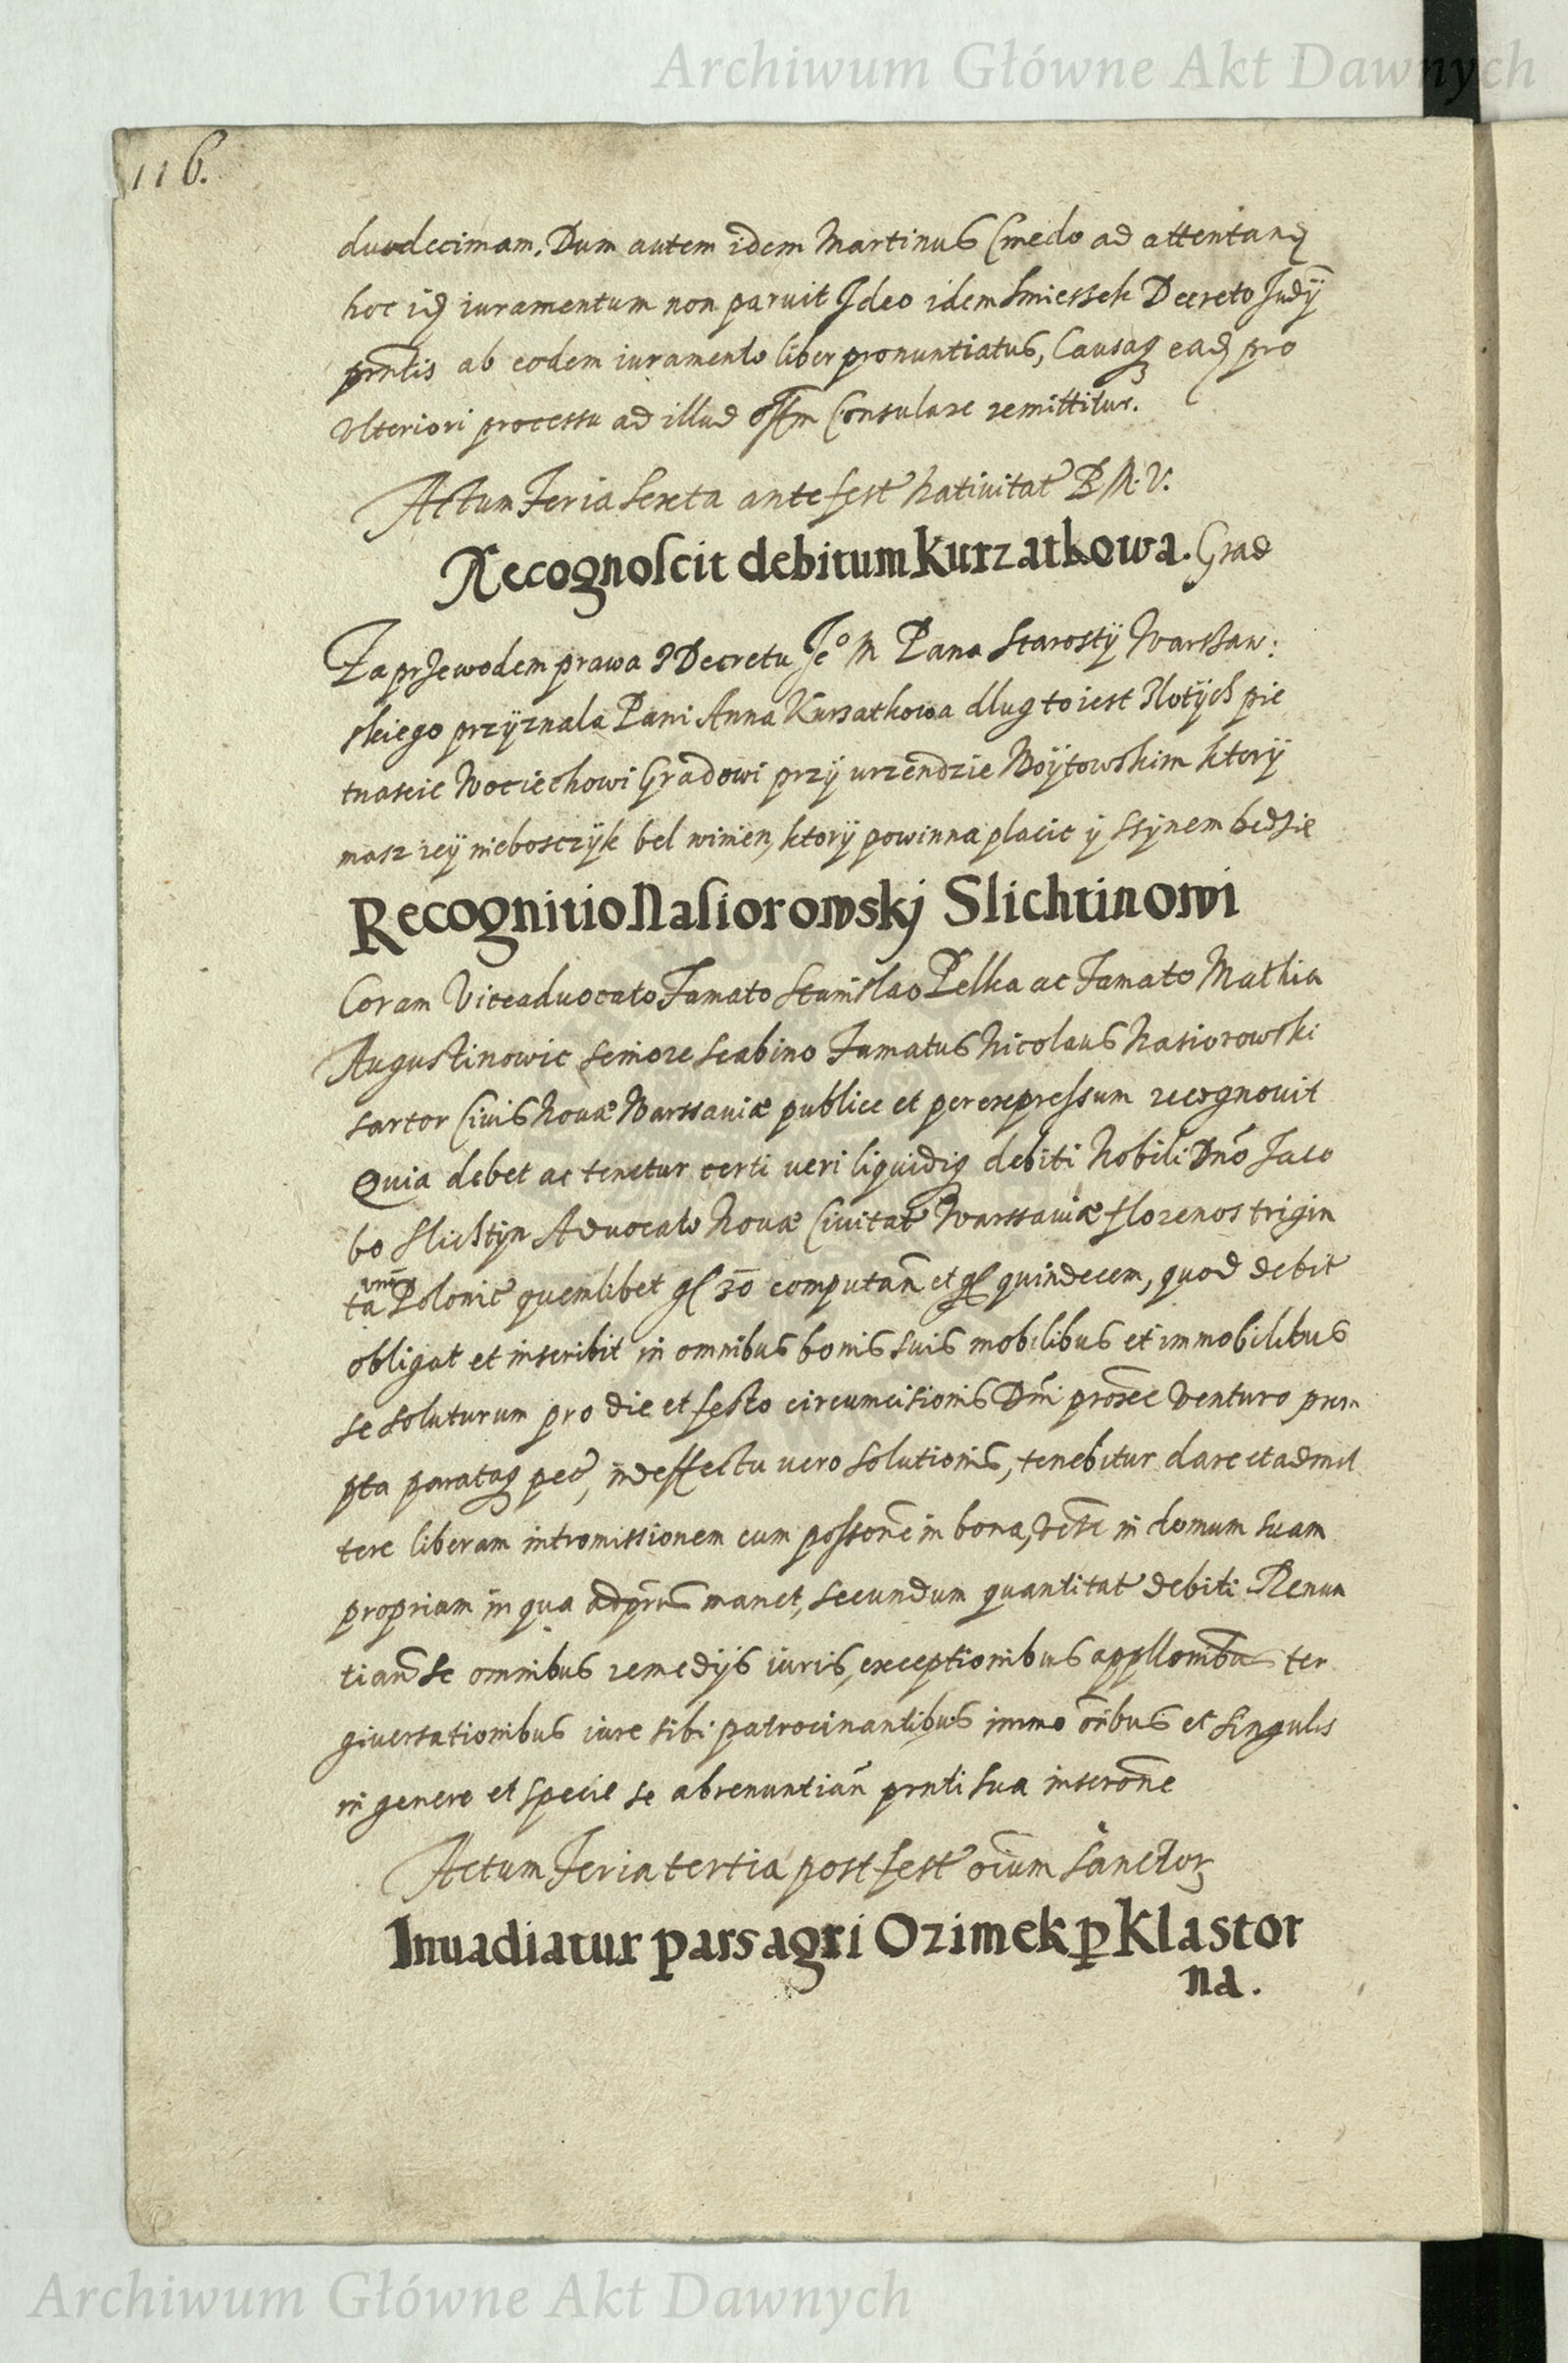 Archiwum Główne Akt Dawnych
116.
duodecimam. Dum autem idem Martinus Cmedo ad attentand
hoc id iuramentum non paruit Ideo idem Smiessek Decreto Judÿ
prntis ab eodem iuramento liber pronuntiatus, Causaq ead pro
Vlteriori processu ad illud offm Consulare remittitur.
Actum Feria Sexta ante fest Natiuitat B M. V.
Recognoscit debitum Kurzatkowa. Grad
Za przewodem prawa z Decretu Je° M Pana Starostÿ Warssaw:
skiego przÿznala Pani Anna Kurzatkowa dlug to iest Zlotÿch pie
tnascie Wociechowi Gradowi przÿ urzendzie Woÿtowskim ktorÿ
masz ieÿ nieboszczÿk bel winien, ktorÿ powinna placic ÿ ssÿnem bedzie
Recognitio Nasiorowskj Slichtinowi
Coram Viceaduocato Famato Stanislao Pelka ac Famato Mathia
Augustinowic Seniore Scabino Famatus Nicolaus Nasiorowski
sartor Ciuis Nouæ Warssauiæ publice et per expressum recognouit
Quia debet ac tenetur certi ueri liquidiq debiti Nobili Dnō Jaco
bo Slichtyn Aduocato Nouæ Ciuitat Warssauiæ florenos trigin
ta Polonic quemlibet gſ 30 computan et gſ quindecem, quod debit
obligat et inscribit in omnibus bonis suis mobilibus et immobilibus
se soluturum pro die et festo circumcisionis Dnī proxēe Venturo prom
pta parataq pec, indeffectu uero solutionis, tenebitur dare et admit
tere liberam intromissionem cum possonē in bona, in domum suam
propriam in qua adprns manet, secundum quantitat debiti. Renun
tian se omnibus remedijs iuris, exceptionibus appllonibus ter
giuersationibus iure sibi patrocinantibus immo oībus et singulis
in genere et specie se abrenuntian prnti sua inscronē
Actum Feria tertia post fest oīum Sanctor
Inuadiatur pars agri Ozimek p Klastor
na.
Archiwum Główne Akt Dawnych